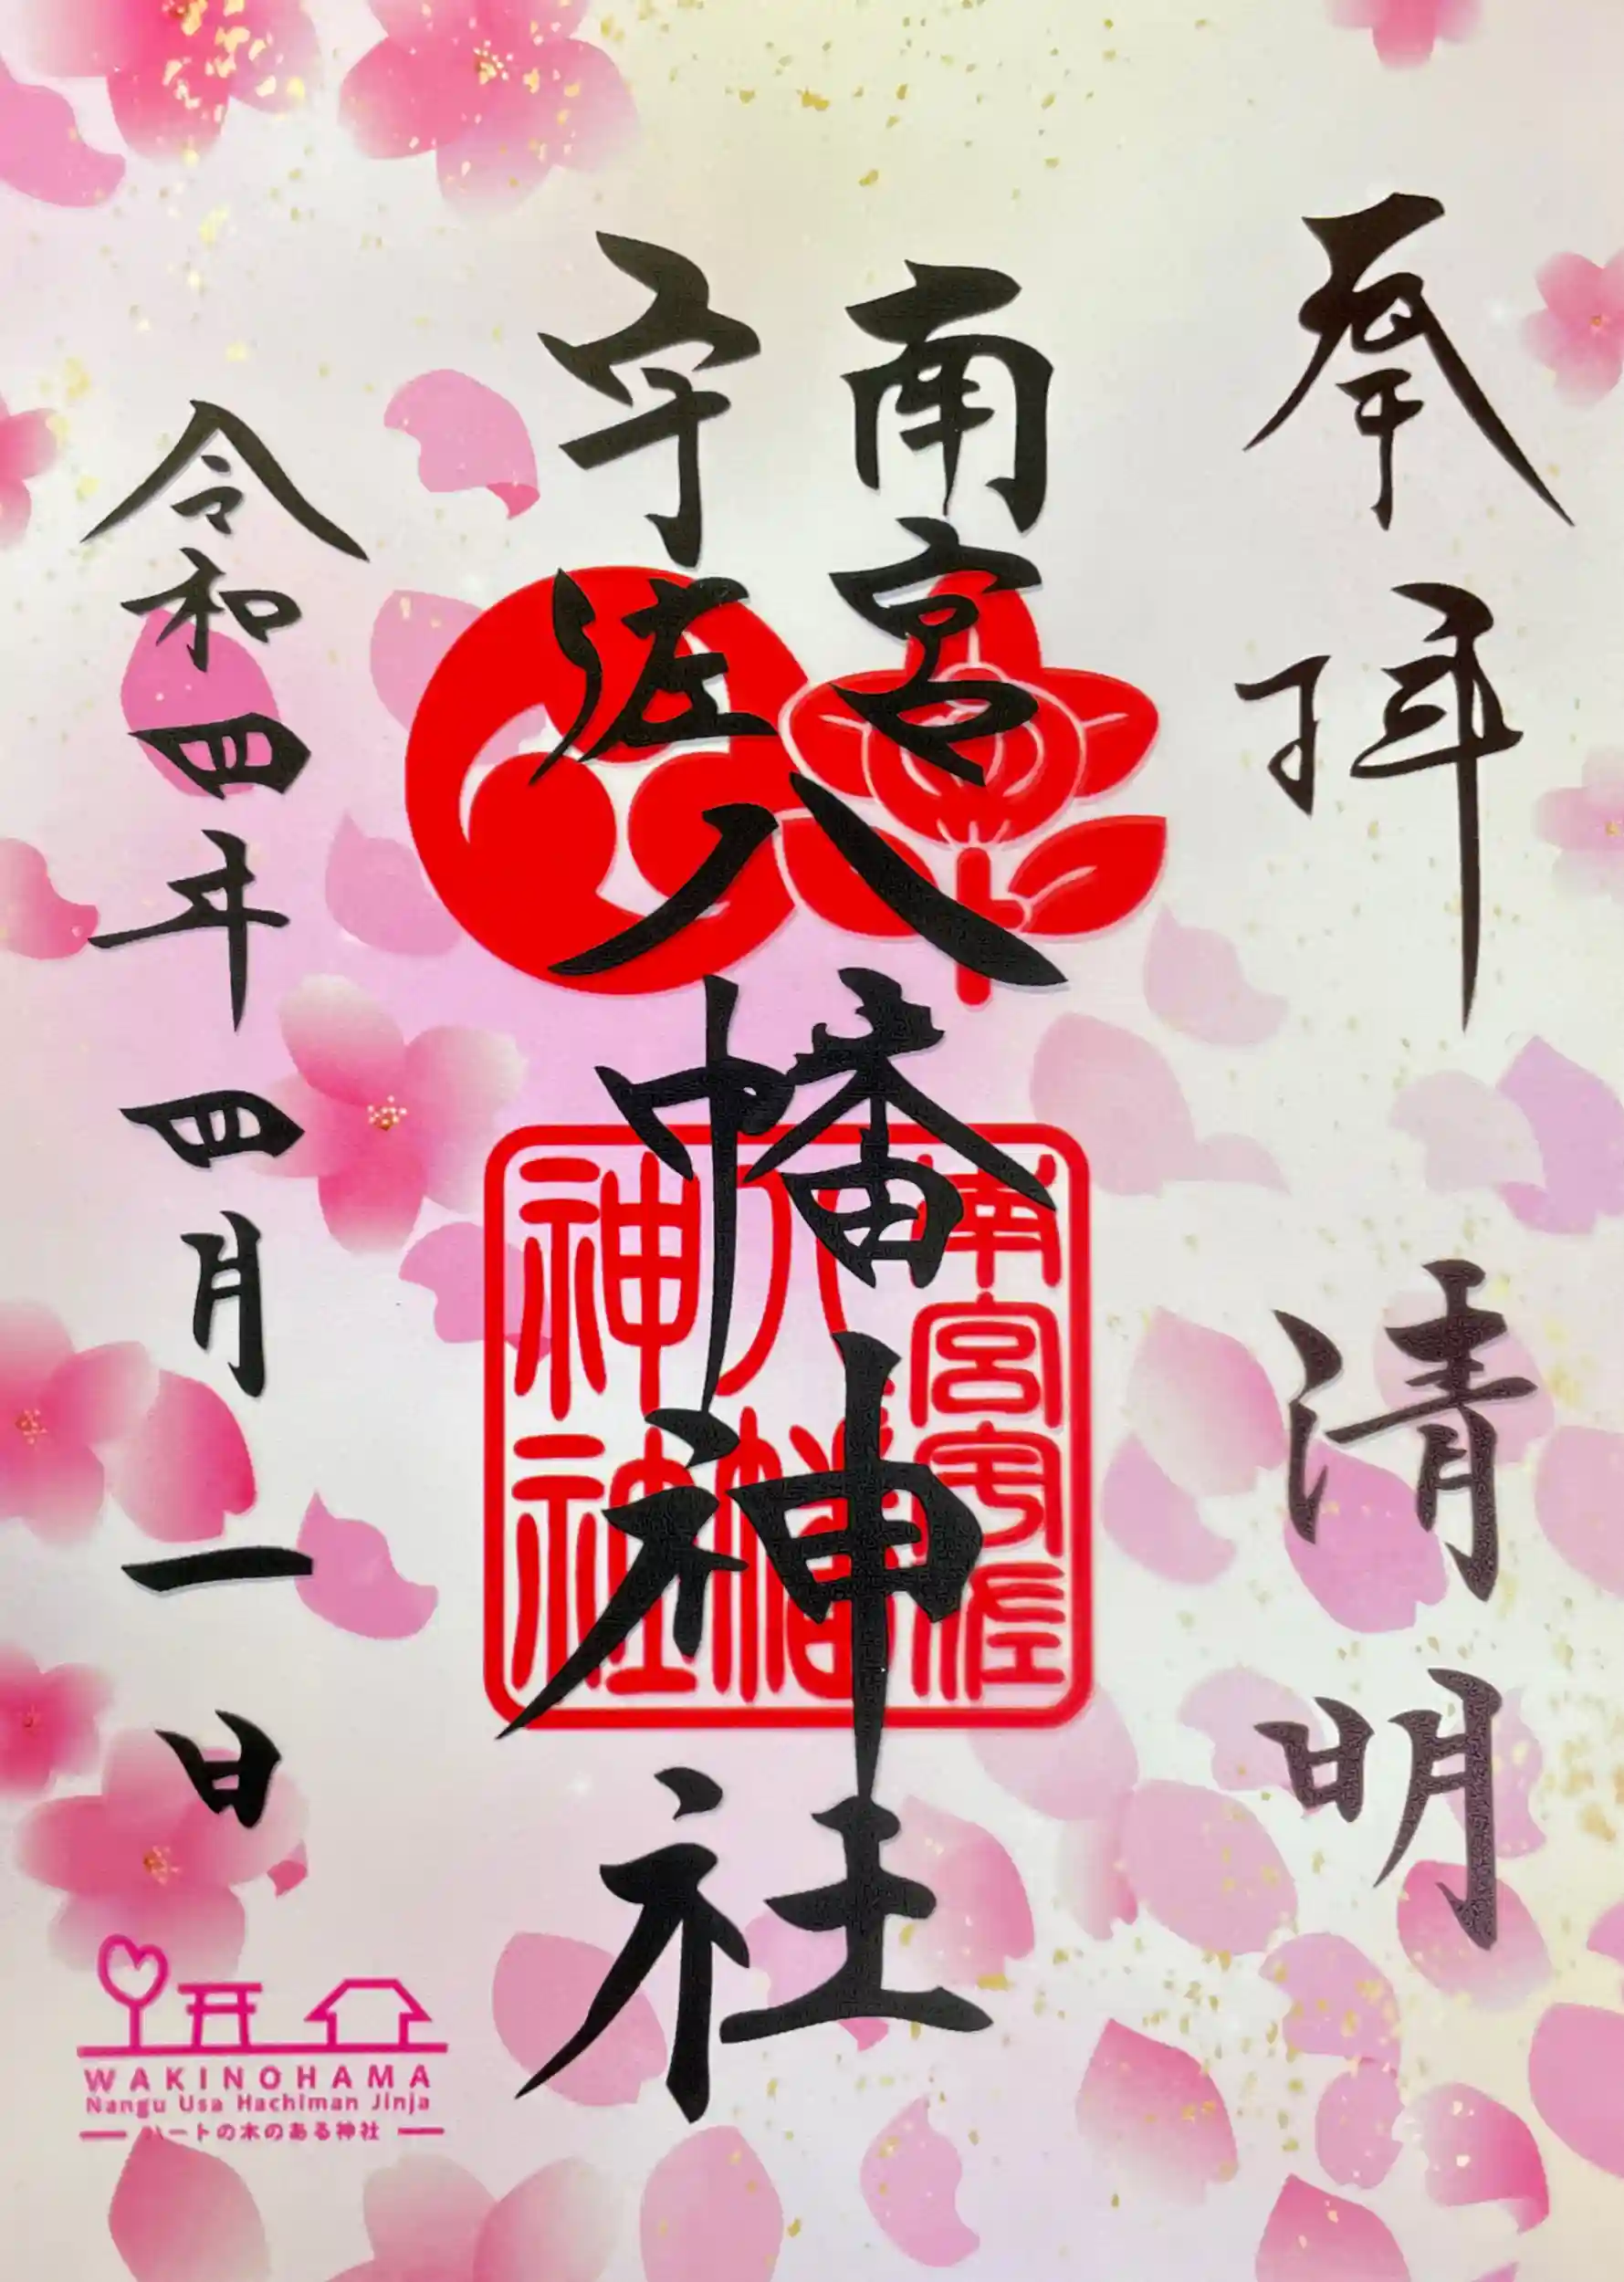 奉拝 清明
南宮
宇佐
八幡神社
南宮宇佐
八幡
神社
令和四年四月一日
WAKINOHAMA
Nangu Usa Hachiman Jinja
ハートの木のある神社